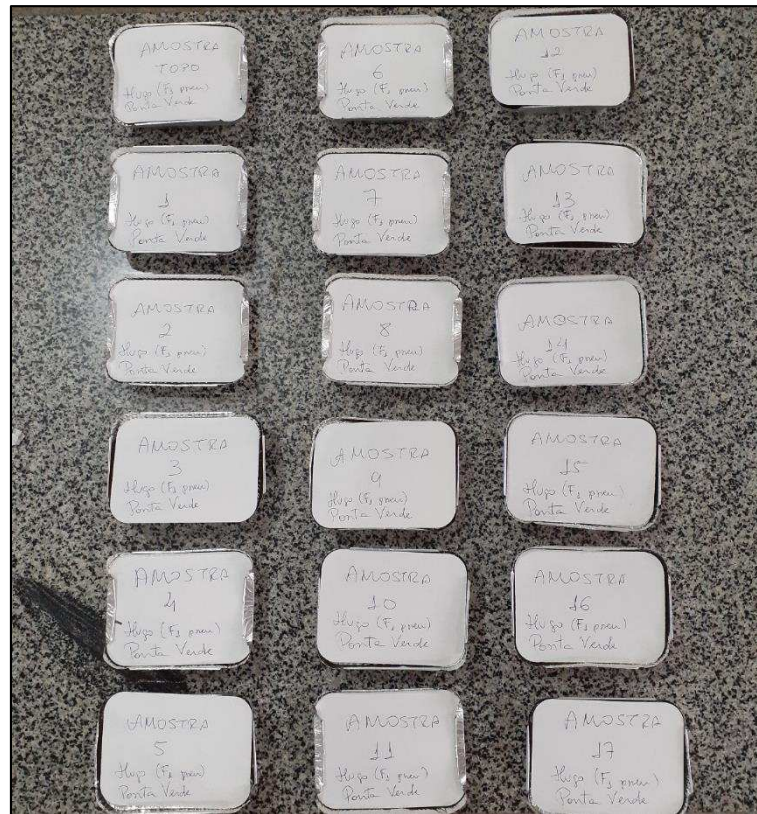 AMOSTRA
TOPO
Hugo (F1 pneu)
Ponta Verde
AMOSTRA
1
Hugo (F1 pneu)
Ponta Verde
AMOSTRA
2
Hugo (F1 pneu)
Ponta Verde
AMOSTRA
3
Hugo (F1 pneu)
Ponta Verde
AMOSTRA
4
Hugo (F1 pneu)
Ponta Verde
AMOSTRA
5
Hugo (F1 pneu)
Ponta Verde
AMOSTRA
6
Hugo (F1 pneu)
Ponta Verde
AMOSTRA
7
Hugo (F1 pneu)
Ponta Verde
AMOSTRA
8
Hugo (F1 pneu)
Ponta Verde
AMOSTRA
9
Hugo (F1 pneu)
Ponta Verde
AMOSTRA
10
Hugo (F1 pneu)
Ponta Verde
AMOSTRA
11
Hugo (F1 pneu)
Ponta Verde
AMOSTRA
12
Hugo (F1 pneu)
Ponta Verde
AMOSTRA
13
Hugo (F1 pneu)
Ponta Verde
AMOSTRA
14
Hugo (F1 pneu)
Ponta Verde
AMOSTRA
15
Hugo (F1 pneu)
Ponta Verde
AMOSTRA
16
Hugo (F1 pneu)
Ponta Verde
AMOSTRA
17
Hugo (F1 pneu)
Ponta Verde